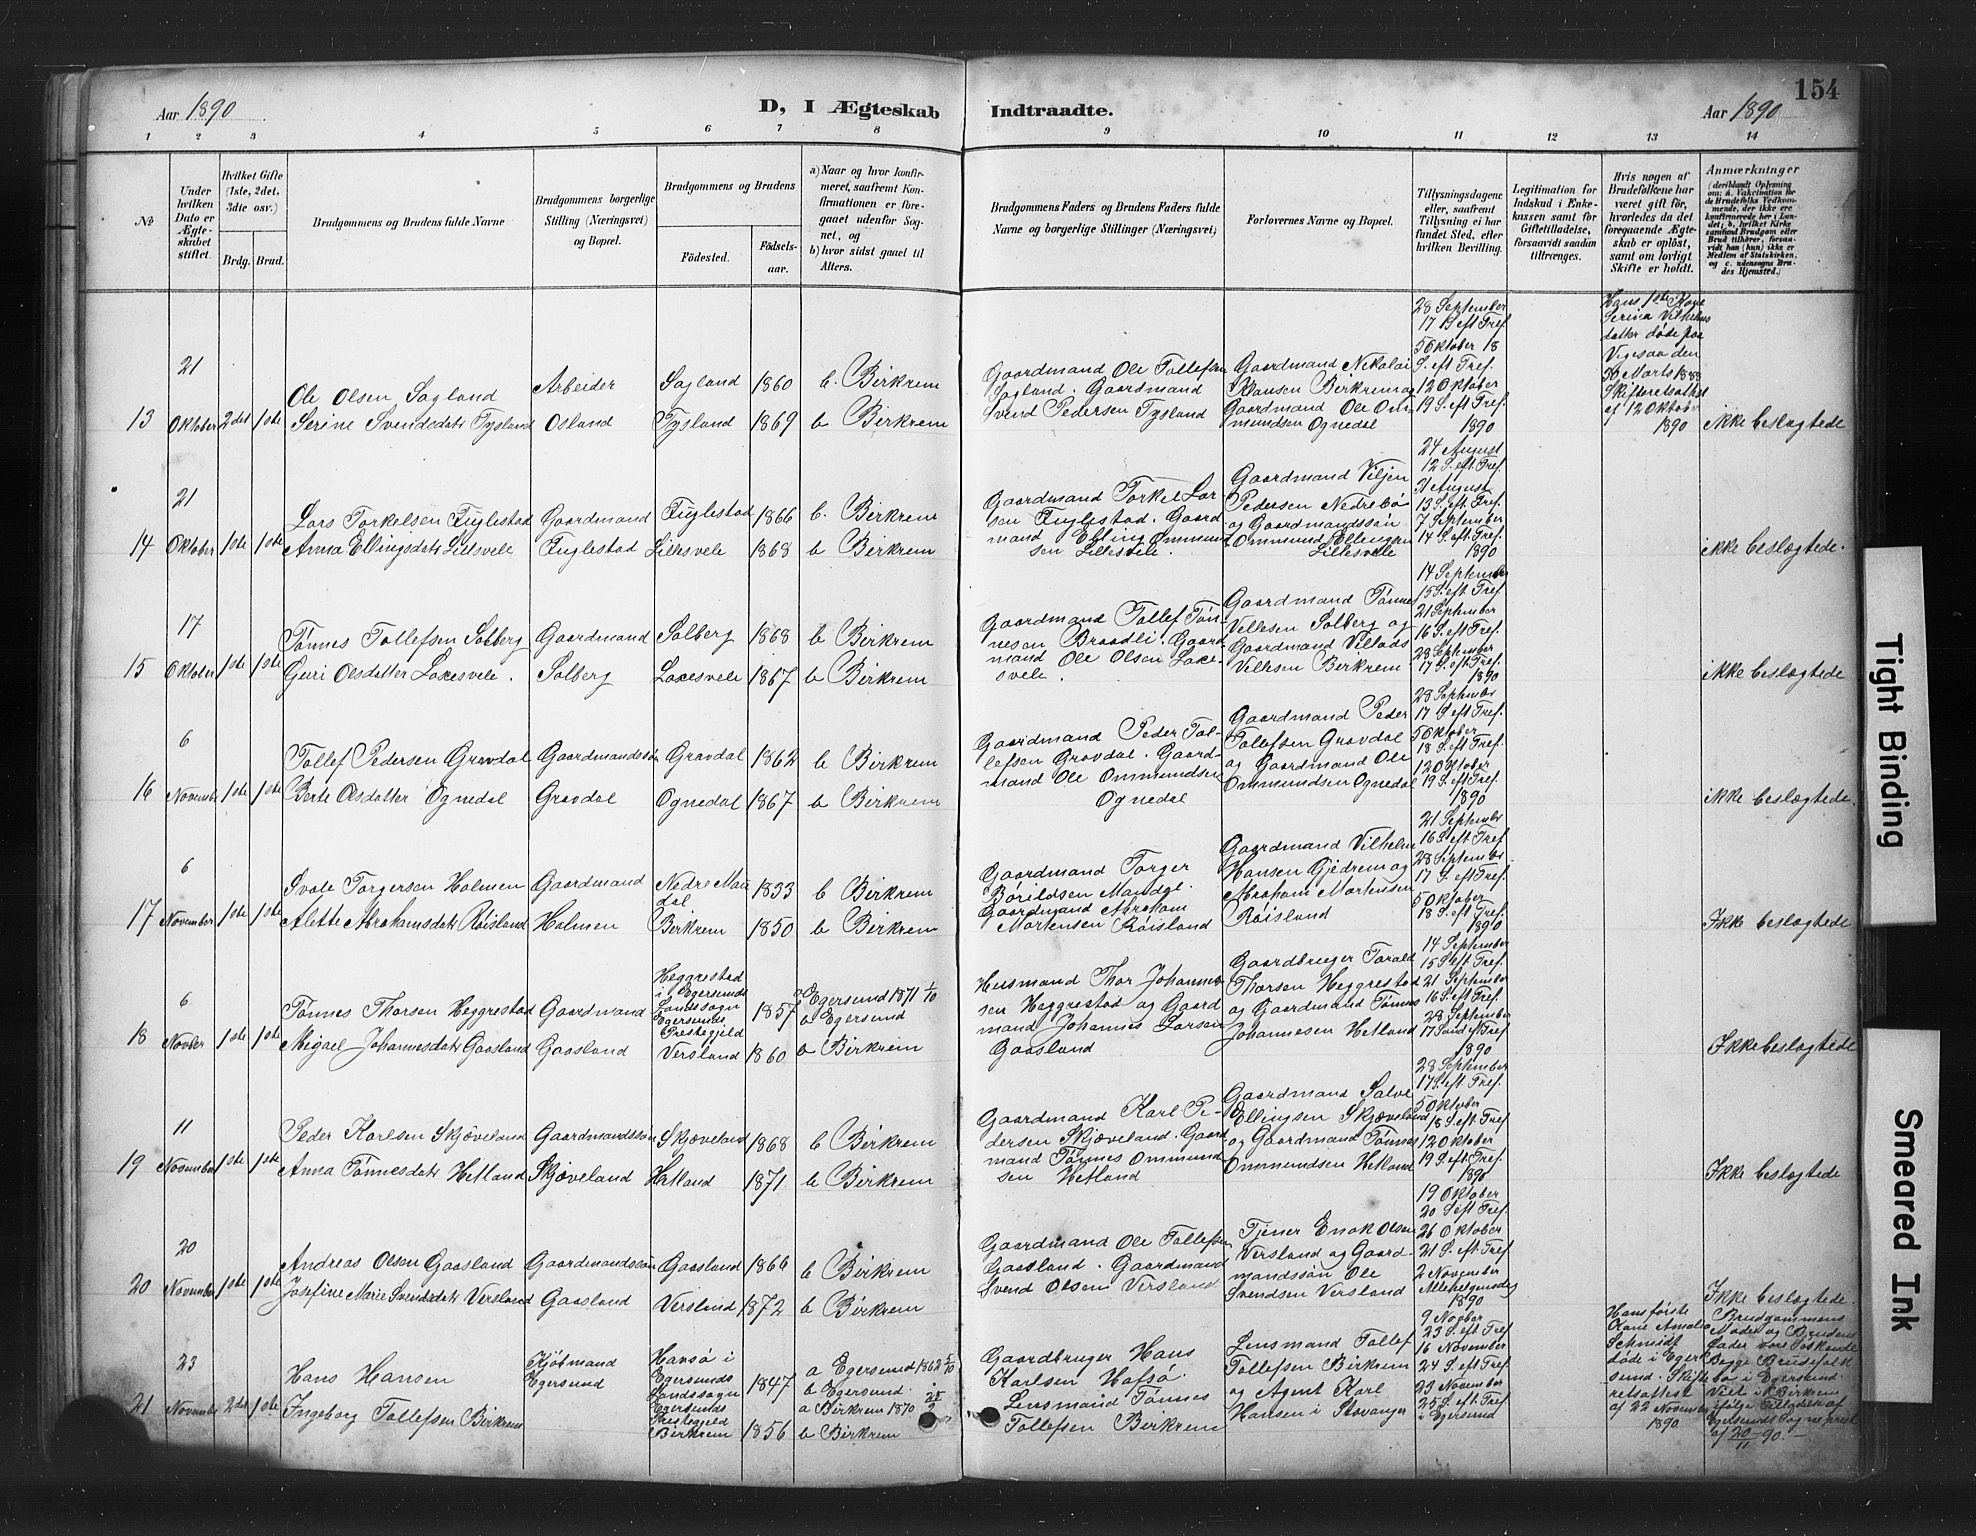 Aar 1890
D, I Ægteskab
Indtraadte.
Aar 1890
154
1 2 3 4 5 6 7 8 9 10 11 12 13 14
№
Under hvilken Dato er Ægteskabet stiftet.
Hvilket Gifte (1ste, 2det, 3die osv.)
Brdg. Brud.
Brudgommens og Brudens fulde Navne
Brudgommens borgerlige Stilling (Næringsvei) og Bopæl.
Brudgommens og Brudens
Fødested.
Fødselsaar.
a) Naar og hvor konfirmeret, saafremt Konfirmationen er foregaaet udenfor Sognet, og
b) hvor sidst gaaet til Alters.
Brudgommens Faders og Brudens Faders fulde Navne og borgerlige Stillinger (Næringsvei)
Forlovernes Navne og Bopæl.
Tillysningsdagene eller, saafremt Tillysning ei har fundet Sted, efter hvilken Bevilling.
Legitimation for Indskud i Enkekassen samt for Giftetilladelse, forsaavidt saadan tiltrænges.
Hvis nogen af Brudefolkene har været gift før, hvorledes da det foregaaende Ægteskab er opløst, samt om lovligt Skifte er holdt.
Anmerkninger
(deriblandt Oplysning om: a. Vakcination for de Brudefolks Vedkommende, der ikke ere konfirmerede her i Landet; b. hvilket Kirkesamfund Brudgom eller Brud tilhører, forsaavidt han (hun) ikke er Medlem af Statskirken, og c. udensogns Brudes Hjemsted.)
13
21 Oktober
2det 1ste
Ole Olsen Sagland
Serine Svendsdatr Tysland
Arbeider
Osland
Sagland 1860 b. Birkrem
Tysland 1869 b Birkrem
Gaardmand Ole Tollefsen
Sagland. Gaardmand
Svend Pedersen Tysland
Gaardmand Nikolai
Hansen Birkrem og
Gaardmand Ole Om-
mundsen Ognedal
28 September
17 S eft Tref.
5 Oktober 18
S. eft Tref.
12 Oktober
19 S. eft Tref.
1890
Hans 1ste Kone
Serina Vilhelms
datter døde paa
Vigesaa den
30 Marts 1888
Skifteretsattest
af 12 Oktober
1890
ikke beslægtede
14
21 Oktober
1ste 1ste
Lars Torkelsen Fuglestad
Anna Ellingsdatr Lillesvele
Gaardmand
Fuglestad
Fuglestad 1866 b. Birkrem
Lillesvele 1868 b Birkrem
Gaardmand Torkel Lar-
sen Fuglestad. Gaard
mand Elling Ommund
sen Lillesvele.
Gaardmand Viljen
Pedersen Nedrebø
og Gaardmandssøn
Ommund Ellingsen
Lillesvele
24 August
12 S. eft Tref.
31 August
13 S. eft. Tref.
7 September
14 S. eft. Tref.
1890
ikke beslægtede.
15
17 Oktober
1ste 1ste
Tønnes Tollefsen Solberg
Guri Olsdatter Laxesvele.
Gaardmand
Solberg
Solberg 1868 b Birkrem
Laxesvele 1867 b Birkrem
Gaardmand Tollef Tøn-
nesen Braadli. Gaard
mand Ole Olsen Laxe-
svele.
Gaardmand Tønnes
Villesen Solberg og
Gaardmand Villads
Villesen Birkrem
14 September
15 S. eft Tref.
21 September
16 S. eft Tref.
28 September
17 S. eft Tref.
1890
ikke beslægtede
16
6 November
1ste 1ste
Tollef Pedersen Gravdal
Berte Olsdatter Ognedal
Gaardmandssøn
Gravdal
Gravdal 1862 b Birkrem
Ognedal 1867 b Birkrem
Gaardmand Peder Tol-
lefsen Gravdal. Gaard-
mand Ole Ommundsen
Ognedal
Gaardmand Peder
Tollefsen Gravdal
og Gaardmand Ole
Ommundsen Ognedal
28 Septembr
17 S eft Tref.
5 Oktober
18 S. eft Tref.
12 Oktober
19 S. eft Tref.
1890
ikke beslægtede.
17
6 November
1ste 1ste
Svale Torgersen Holmen
Alette Abrahamsdatr Røisland
Gaardmand
Holmen
Nedre Mau
dal 1833 b Birkrem
Birkrem 1850 b Birkrem
Gaardmand Torger
Børildsen Maudal.
Gaardmand Abraham
Mortensen Røisland
Gaardmand Vilhelm
Hansen Gjedrem og
Abraham Mortensen
Røisland
21 Septembr
16 S. eft Tref.
28 Septembr
17 S. eft Tref.
5 Oktober
18 S. eft Tref.
1890
Ikke beslægtede
18
6 Novber
1ste 1ste
Tønnes Thorsen Heggrestad
Migael Johannesdatr Gaasland
Gaardmand
Gaasland
Heggrestad
i Egersunds
Landssogn
Egersunds
Prestegjeld 1857
a Egersund 1871 1/10
b Egersund
Versland 1860 b Birkrem
Husmand Thor Johannes-
sen Heggrestad og Gaard
mand Johannes Larsen
Gaasland
Gaardbruger Torald
Thorsen Heggrestad
og Gaardmand Tønnes
Johannesen Hetland
14 September
15 S. eft Tref.
21 September
16 S. eft Tref.
28 September
17 Sønd eft Tref.
1890
Ikke beslægtede
19
11 November
1ste 1ste
Peder Karlsen Skjæveland
Anna Tønnesdatr Hetland
Gaardmandssøn
Skjæveland
Skjæveland 1868 b Birkrem
Hetland 1871. b Birkrem
Gaardmand Karl Pe-
dersen Skjæveland. Gaard
mand Tønnes Ommund
sen Hetland
Gaardmand Salve
Ellingsen Skjæveland
og Gaardmand Tønnes
Ommundsen Hetland
28 September
17 S. eft Tref.
5 Oktober
18 S. eft Tref
12 Oktober
19 S. eft Tref.
1890
Ikke beslægtede
20
20 November
1ste 1ste
Andreas Olsen Gaasland
Josefine Marie Svendsdatr Versland
Gaardmandssøn
Gaasland
Gaasland 1866 b Birkrem
Versland 1872 b Birkrem
Gaardmand Ole Tollefsen
Gaasland. Gaardmand
Svend Olsen Versland
Tjener Enok Olsen
Versland og Gaard-
mandssøn Ole
Svendsen Versland
19 Oktober
20 S eft Tref.
26 Oktober
21 S. eft Tref
2 November
Allehelgensdag
1890
Ikke beslægtede.
21
23 November
2det 1ste
Hans Hansen
Ingeborg Tollefsen Birkrem
Kjøbmand
Egersund
Havsø i
Egersunds
Landssogn
Egersunds
Prestegjeld 1847
Birkrem 1856
a Egersund 1862 5/10
b Egersund.
a Birkrem 1870 25/9
b Birkrem
Gaardbruger Hans
Karlsen Hafsø.
Lensmand Tønnes
Tollefsen Birkrem
Lensmand Tollef
Tollefsen Birkrem
og Agent Karl
Hansen i Stavanger
9 Novbr
23 S. eft Tref
16 November
24 S. eft Tref.
23 November
25 S. eft Tref
i Egersund
Hans første
Kone Amalie
Schmidt
døde i Eger
sund. Skifte
retsattest
af 22 November
1890.
Brudgommens
Moder og Brudens
Fader vare Søskende
Begge Brudefolk
bo i Egersund.
Viet i Birkrem
ifølge Tilladelse af
Egersunds Sogneprest
af 20/11 90.
Tight Binding
Smeared Ink